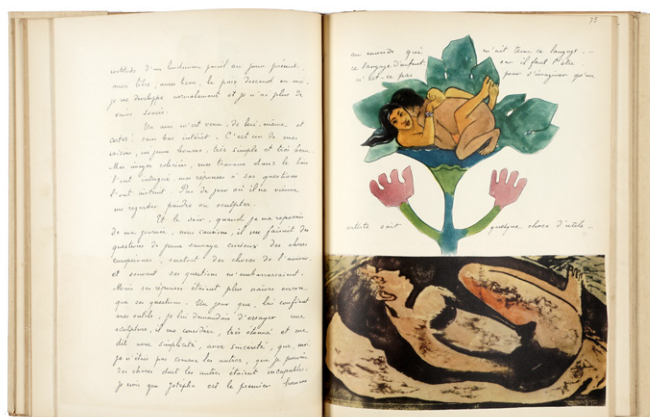 certitude d'un lendemain pareil au jour présent,
aussi libre, aussi beau, la paix descend en moi,
je me développe normalement et je n'ai plus de
vains soucis.
Un ami m'est venu, de lui-même et
certes! sans bas intérêt. C'est un de mes
voisins, un jeune homme, très simple et très beau.
Mes images coloriées, mes travaux dans le bois
l'ont intrigué, mes réponses à ses questions
l'ont instruit. Pas de jour où il ne vienne
me regarder peindre ou sculpter.
Et le soir, quand je me reposais
de ma journée, nous causions, il me faisait des
questions de jeune sauvage curieux des choses
européennes, surtout des choses de l'amour,
et souvent ses questions m'embarrassaient.
Mais ses réponses étaient plus naïves encore
que ses questions. Un jour que, lui confiant
mes outils, je lui demandai d'essayer une
sculpture, il me considéra, très étonné et me
dit avec simplicité, avec sincérité, que, moi,
je n'étais pas comme les autres, que je pouvais
des choses dont les autres étaient incapables.
Je crois que Jotépha est le premier homme
75
au monde qui m'ait tenu ce langage, —
ce langage d'enfant, car il faut l'être,
n'est-ce pas pour s'imaginer qu'un
artiste soit quelque chose d'utile —